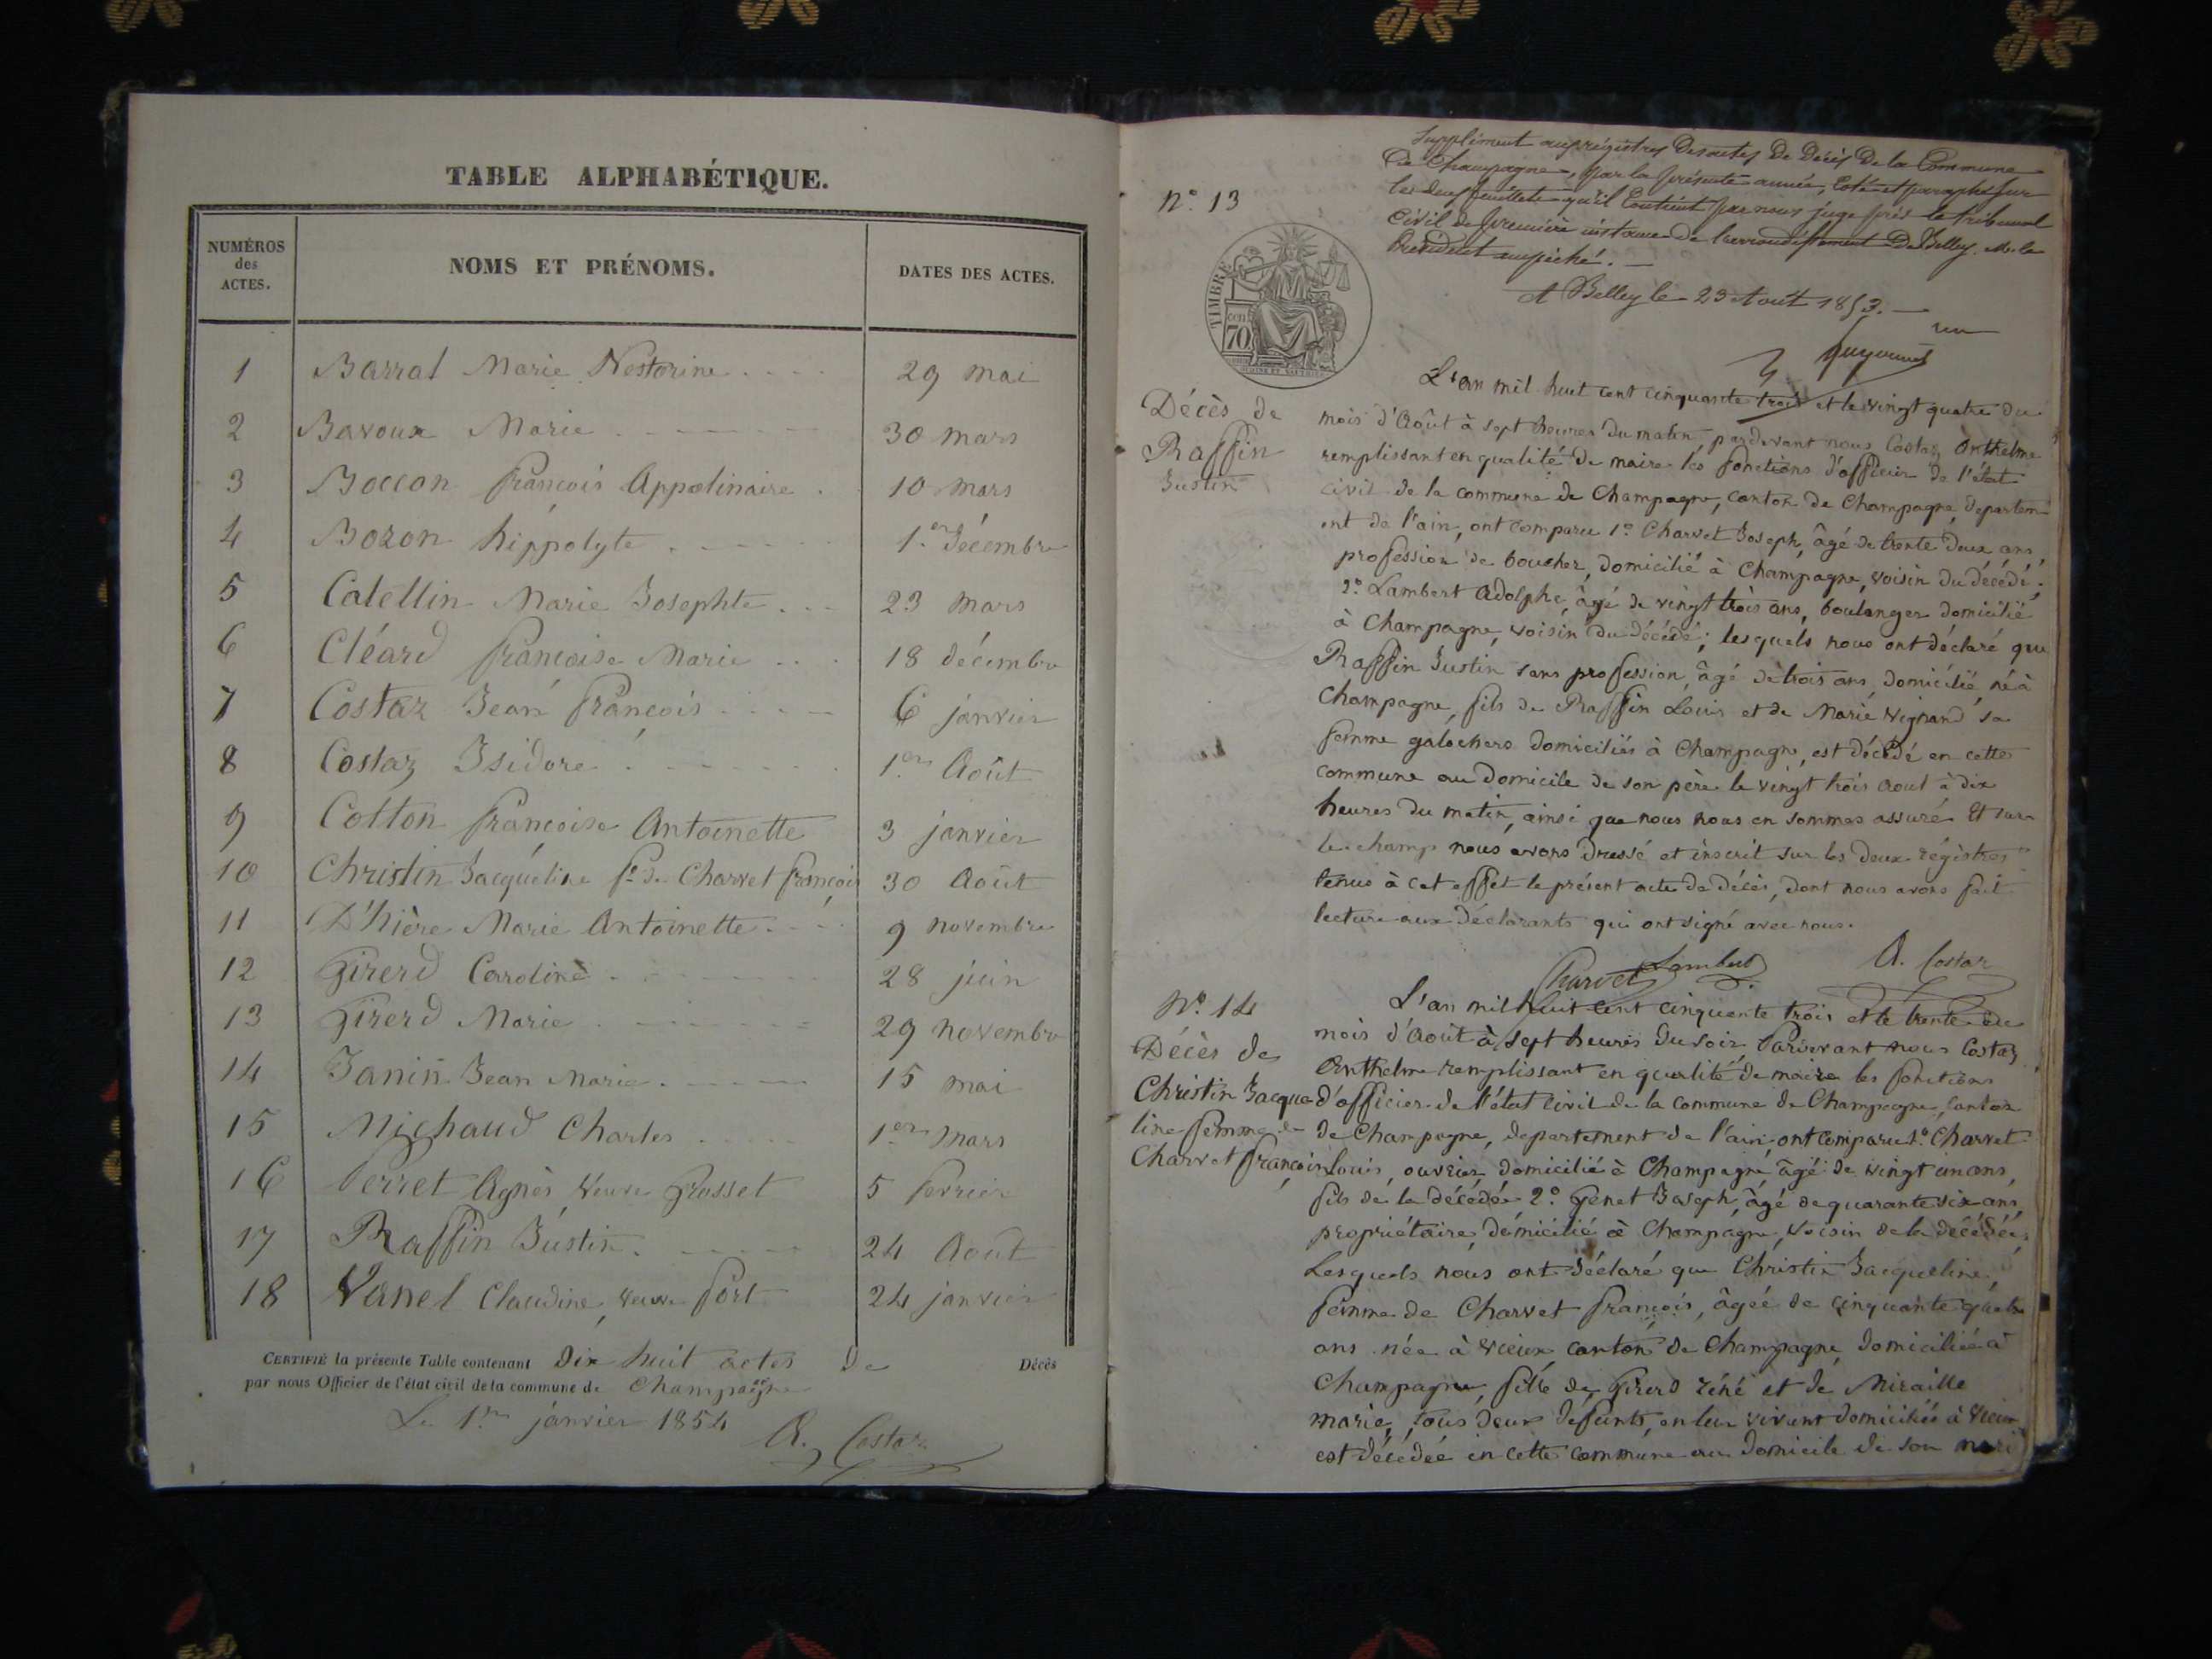 TABLE ALPHABÉTIQUE.
NUMÉROS des ACTES.
NOMS ET PRÉNOMS.
DATES DES ACTES.
1 Barral Marie Nestorine 29 mai
2 Bavoux Marie 30 mars
3 Boccon françois Appolinaire 10 mars
4 Bozon hippolyte 1.er décembre
5 Catellin Marie Josephte 23 mars
6 Cléard françoise Marie 18 décembre
7 Costaz Jean françois 6 janvier
8 Costaz Isidore 1.er Août
9 Cotton françoise Antoinette 3 janvier
10 Christin Jacqueline fe de Charvet françois 30 Août
11 D'hière Marie Antoinette 9 novembre
12 Girerd Caroline 28 juin
13 Girerd Marie 29 novembre
14 Janin Jean Marie 15 mai
15 Michaud Charles 1er mars
16 Perret Agnès Veuve Grosset 5 février
17 Raffin Justin 24 Août
18 Vanel Claudine, veuve fort 24 janvier
CERTIFIÉ la présente Table contenant Dix huit actes de Décès
par nous Officier de l'état civil de la commune de Champagne
Le 1er janvier 1854
A. Costaz
Supplément aux régistres des actes de Décès de la Commune
de Champagne, par la présente année, Coté et paraphé sur
les deux feuillets qu'il Contient par nous juge près le tribunal
Civil de première instance de l'arrondissement de Belley. M. le
Président empêché.
A Belley le 23 Août 1853.
N.o 13
TIMBRE
cen 70
Décès de
Raffin
Justin
L'an mil huit cent cinquante trois et le vingt quatre du
mois d'Août à sept heures du matin, pardevant nous Costaz Anthelme
remplissant en qualité de maire les fonctions d'officier de l'état
civil de la commune de Champagne, canton de Champagne, départem-
ent de l'ain, ont comparu 1.o Charvet Joseph, âgé de trente deux ans,
profession de boucher, domicilié à Champagne, voisin du décédé;
2.o Lambert Adolphe, âgé de vingt trois ans, boulanger domicilié
à Champagne, voisin du décédé; lesquels nous ont déclaré que
Raffin Justin sans profession, âgé de trois ans, domicilié, né à
Champagne, fils de Raffin Louis et de Marie Vignand sa
femme galochers domiciliés à Champagne, est décédé en cette
commune au domicile de son père le vingt trois Aout à dix
heures du matin, ainsi que nous nous en sommes assuré. Et sur
le champ nous avons dressé et inscrit sur les deux régistres
tenus à cet effet le présent acte de décès, dont nous avons fait
lecture aux déclarants qui ont signé avec nous.
Charvet Lambert A. Costaz
N.o 14
Décès de
Christin Jacque
line femme de
Charvet françois
L'an mil huit cent cinquante trois et le trente du
mois d'Août à sept heures du soir, Pardevant nous Costaz
Anthelme remplissant en qualité de maire les fonctions
d'officier de l'état civil de la commune de Champagne, canton
de Champagne, departement de l'ain, ont comparu 1.o Charvet
Louis, ouvrier, domicilié à Champagne, âgé de vingt un ans,
fils de la décédée 2.o Genet Joseph, âgé de quarante six ans,
propriétaire, domicilié à Champagne, voisin de la décédée,
Lesquels nous ont déclaré que Christin Jacqueline,
femme de Charvet françois, âgée de cinquante quatre
ans née à vieux canton de Champagne, domiciliée à
Champagne, fille de Girerd réné et de Miraille
marie, tous deux défunts, en leur vivant domiciliés à Vieux
est décédée en cette commune au domicile de son mari